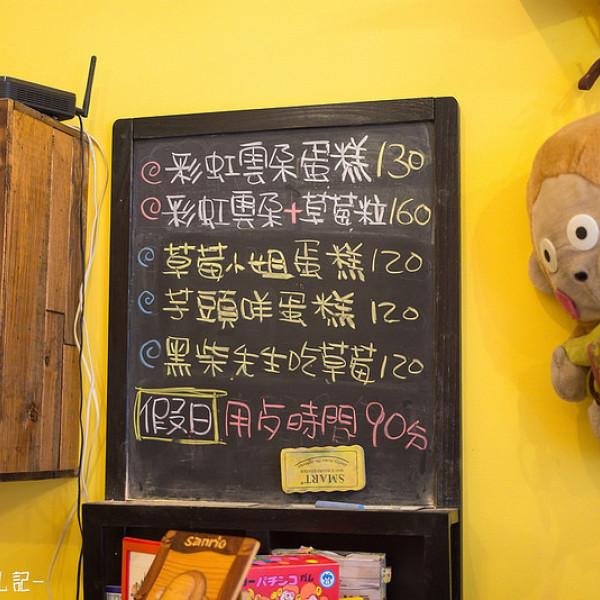 彩虹雲朵蛋糕130
彩虹雲朵+草莓粒160
草莓小姐蛋糕120
芋頭咩蛋糕120
黑柴先生吃草莓120
假日 用歺時間90分
SMART
sanrio
パチンコガム
記-